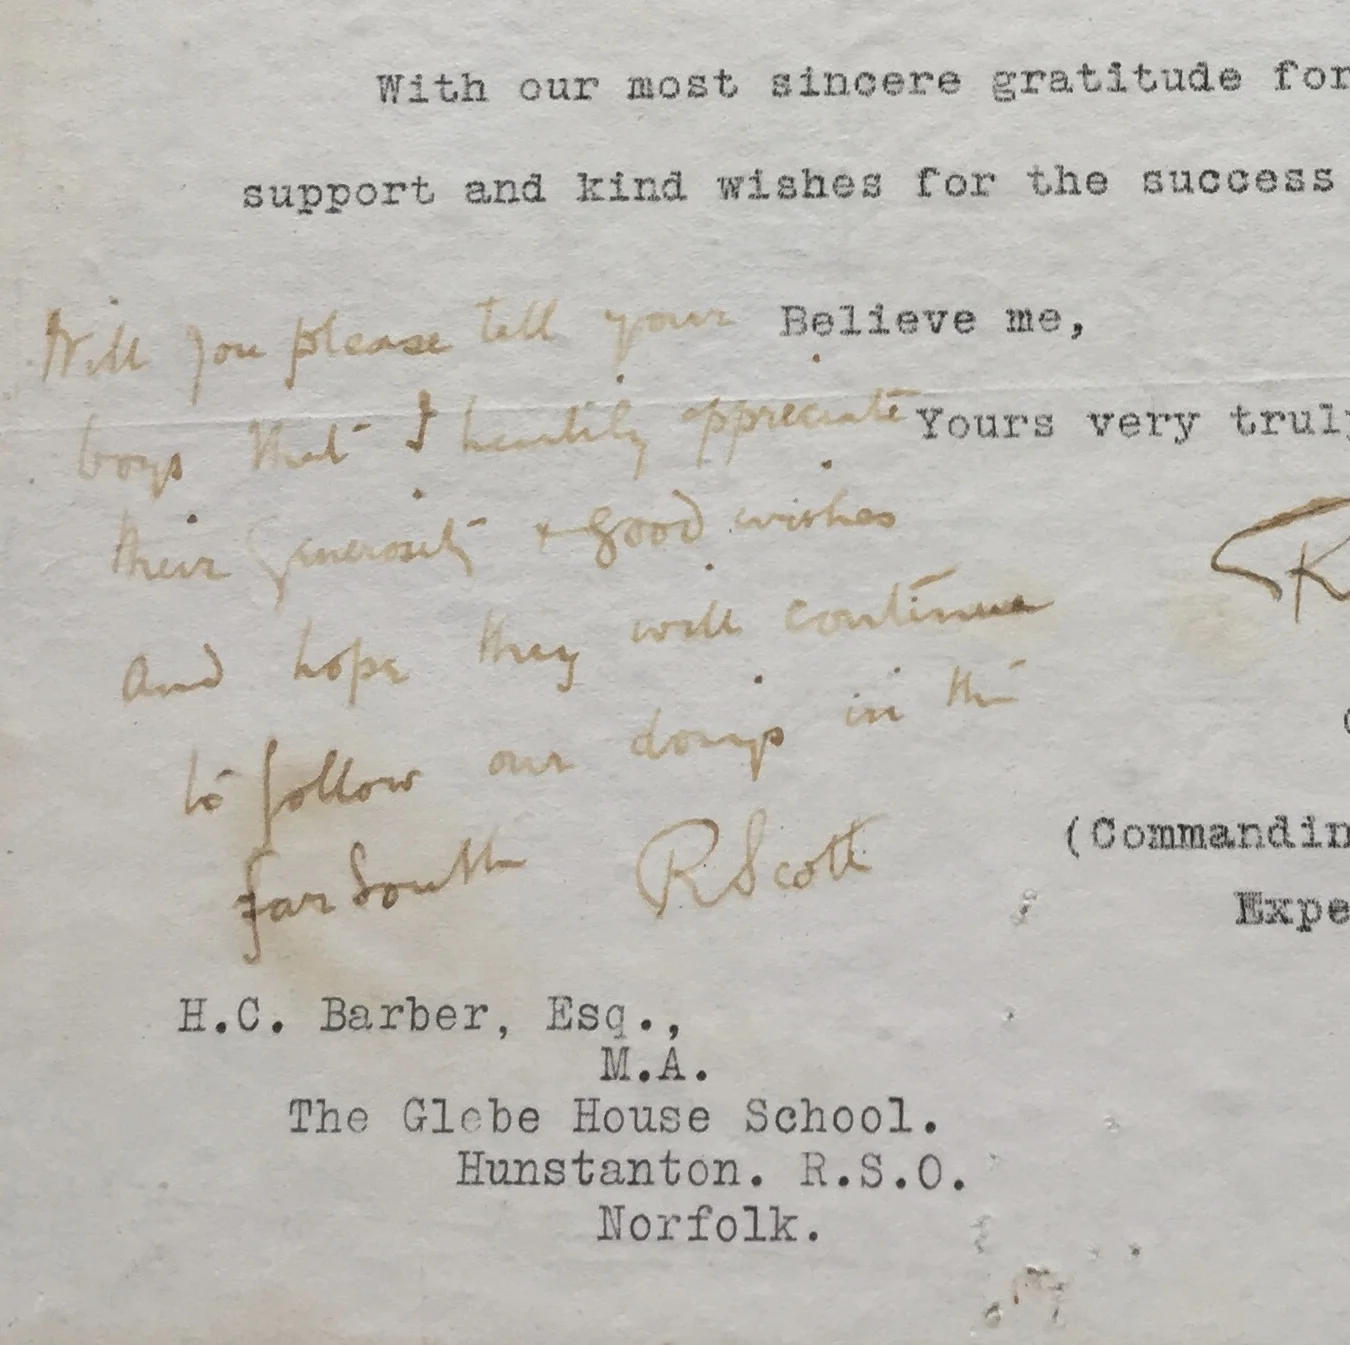 With our most sincere gratitude for
support and kind wishes for the success
Believe me,
Yours very truly
Will you please tell your
boys that I heartily appreciate
their generosity + good wishes
and hope they will continue
to follow our doings in the
far South R Scott
R
(Commandin
Expe
H.C. Barber, Esq.,
M.A.
The Glebe House School.
Hunstanton. R.S.O.
Norfolk.